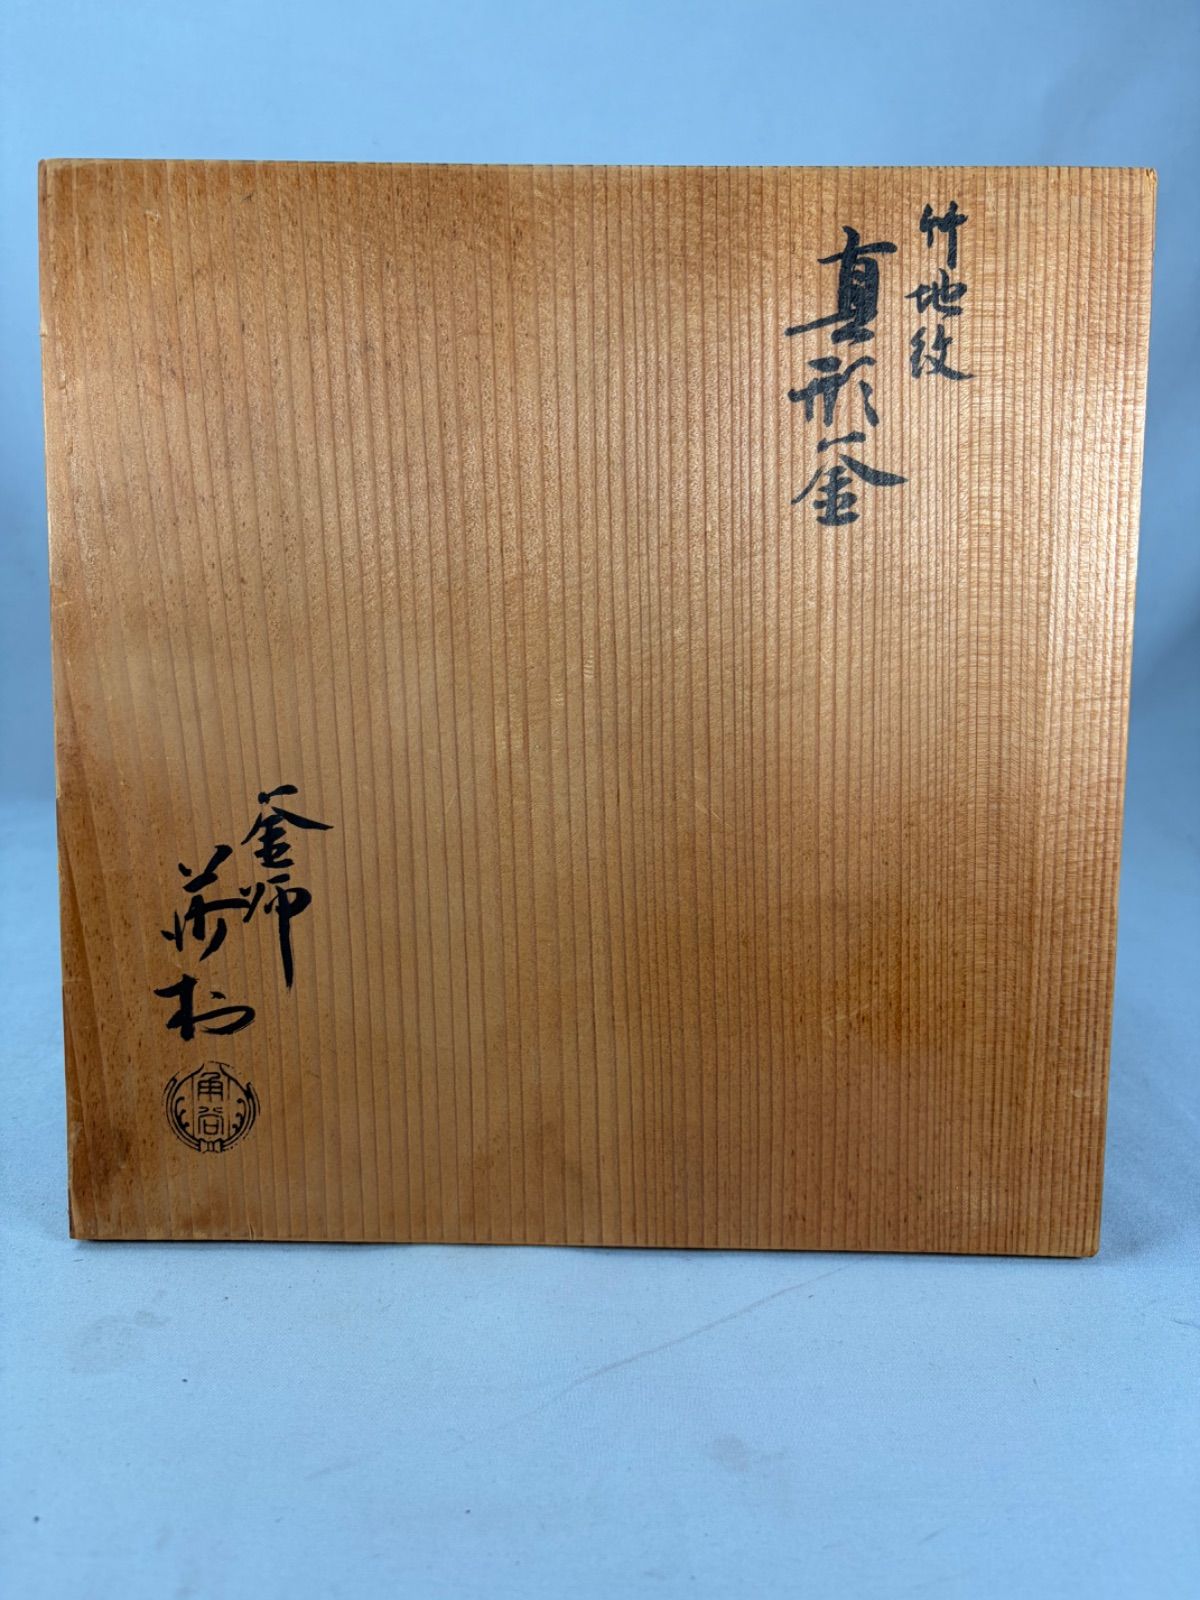 竹地紋
真形釜
釜師
莎村
角谷